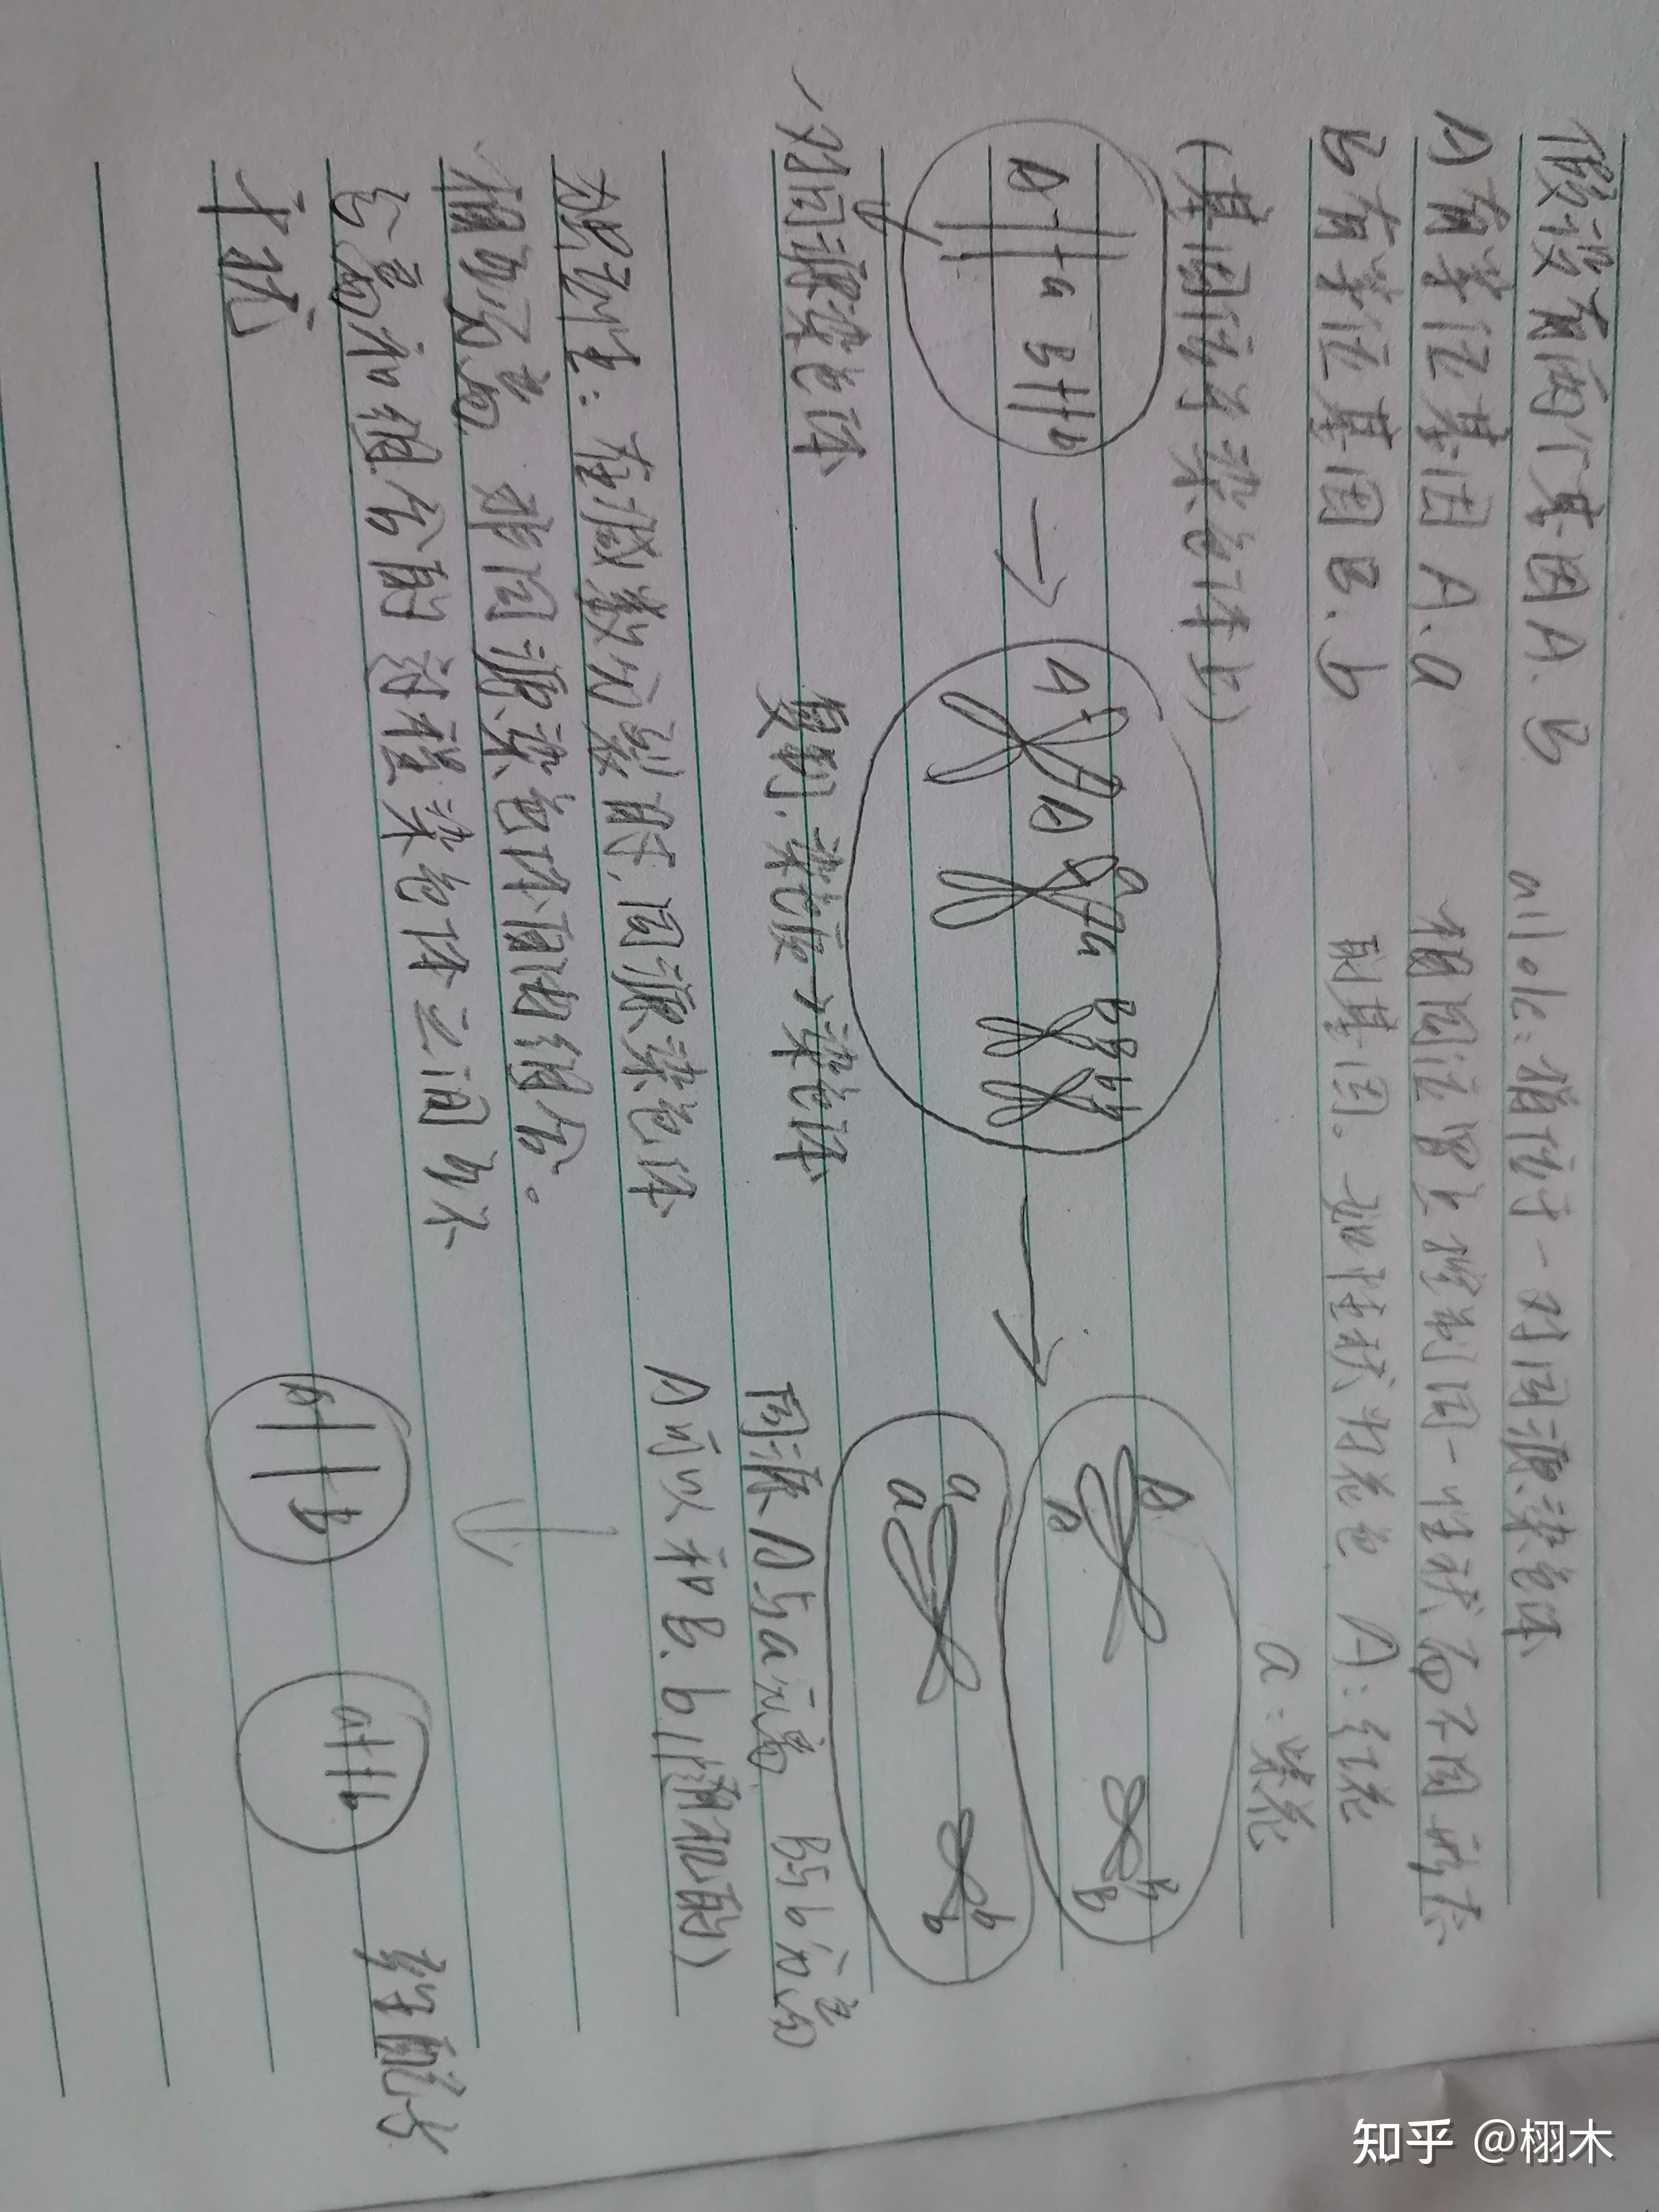 假设有两个基因A、B
allole：指位于一对同源染色体
A有等位基因A、a
相同位置上控制同一性状而不同形态
B有等位基因B、b
的基因。如性状为花色 A：红花
a：紫花
（基因位于染色体上）
A a B b
A A a a B B b b
A A B B
a a b b
一对同源染色体
复制，染色质→染色体
同源A与a分离 B与b分离
A可以和B、b（随机的）
规律：在减数分裂时，同源染色体
相分离，非同源染色体自由组合。
分离和组合的过程染色体之间互不
干扰
A B
a b
配子
知乎 @栩木